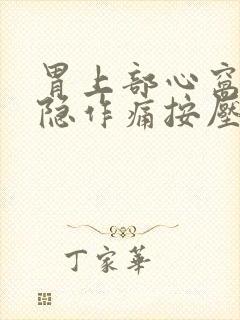 胃上部心窩
隐作痛按壓
丁家華